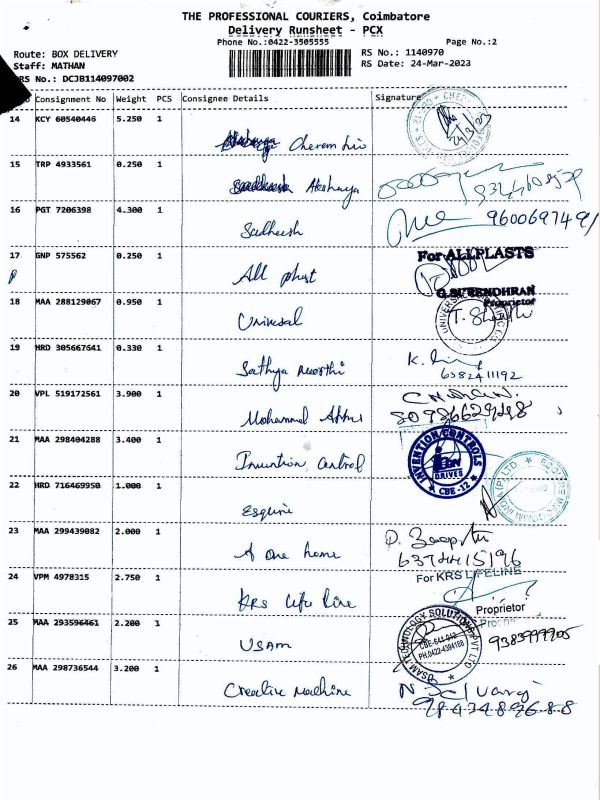 THE PROFESSIONAL COURIERS, Coimbatore
Delivery Runsheet - PCX
Phone No.:0422-3505555 Page No.:2
Route: BOX DELIVERY RS No.: 1140970
Staff: MATHAN RS Date: 24-Mar-2023
RS No.: DCJB114097002
Consignment No Weight PCS Consignee Details Signature
14 KCY 60540446 5.250 1
24/3/23
15 TRP 4933561 0.250 1
Akshaya
16 PGT 7206398 4.300 1
Sadheesh 9600697491
17 GNP 575562 0.250 1 For ALLPLASTS
All plast G.SURENDHRAN
Proprietor
18 MAA 288129067 0.950 1
Universal
19 HRD 305667641 0.330 1
Sathya moorthi 6382411192
20 VPL 519172561 3.900 1
Mohammed
21 MAA 298404288 3.400 1
Invention Control INVENTION CONTROLS
DRIVES
CBE-12
22 HRD 716469950 1.000 1
Esquire
23 MAA 299439082 2.000 1
A one home 6374415196
24 VPM 4978315 2.750 1 For KRS LIFELINE
KRS Life line Proprietor
25 MAA 293596461 2.200 1
USAM USAM TECHNOLOGY SOLUTIONS PVT LTD
PH.0422-4394188
26 MAA 298736544 3.200 1
Creative Machine